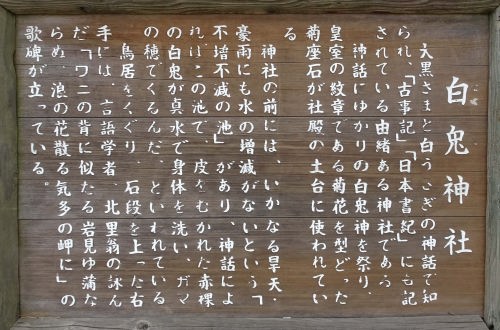 白兎神社
大黒さまと白うさぎの神話で知
られ、「古事記」「日本書紀」にも記
されている由緒ある神社である。
神話にゆかりの白兎神を祭り、
皇室の紋章である菊花を型どった
菊座石が社殿の土台に使われてい
る
神社の前には、いかなる旱天・
豪雨にも水の増減がないという「
不増不減の池」があり、神話によ
れば、この池で、皮をむかれた赤裸
の白兎が真水で身体を洗い、ガマ
の穂でくるんだ、といわれている
鳥居をくぐり、石段を上った右
手には、言語学者、北里翁の詠ん
だ「ワニの背に似たる岩見ゆ蒲な
らぬ、浪の花散る気多の岬に」の
歌碑が立っている。